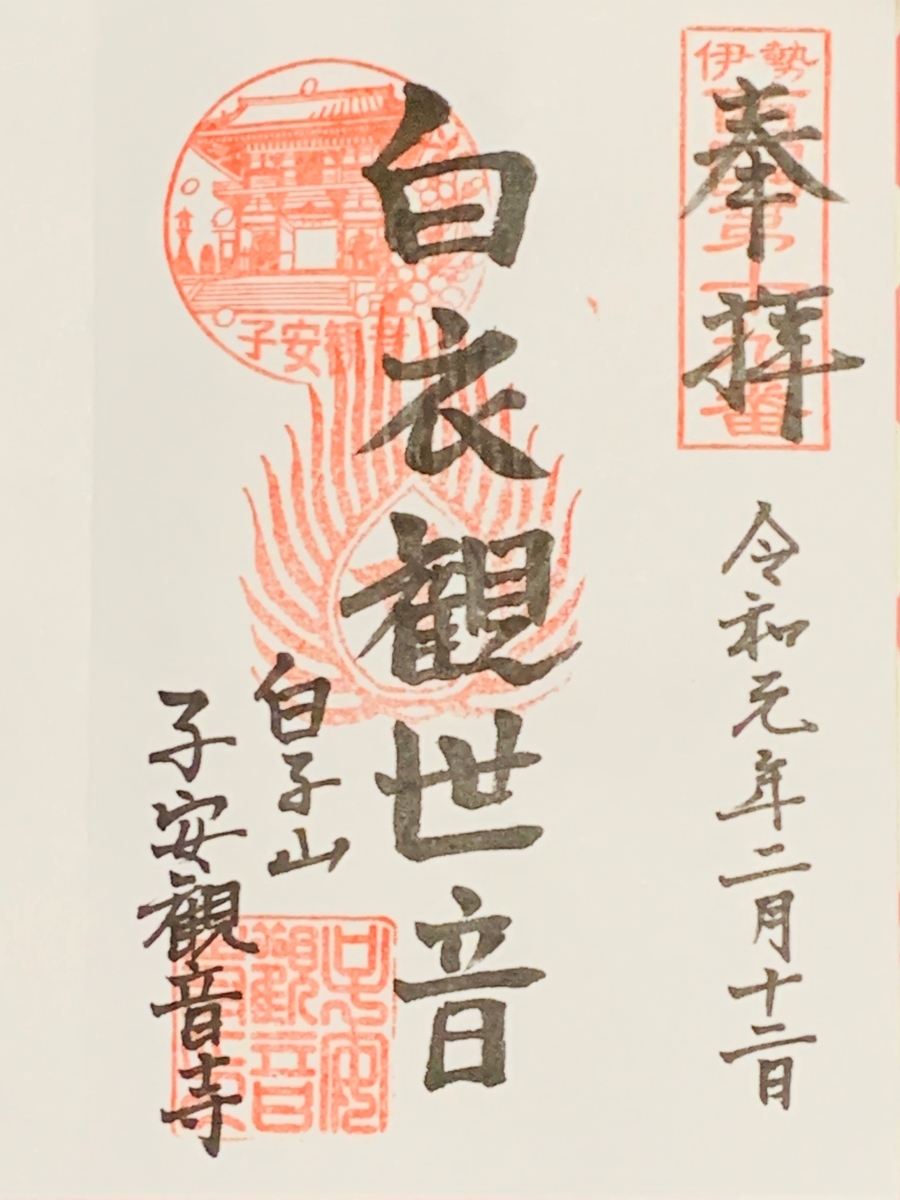 伊勢
奉拝
令和元年二月十二日
白衣観世音
子安観音
白子山
子安観音寺
子安
觀音